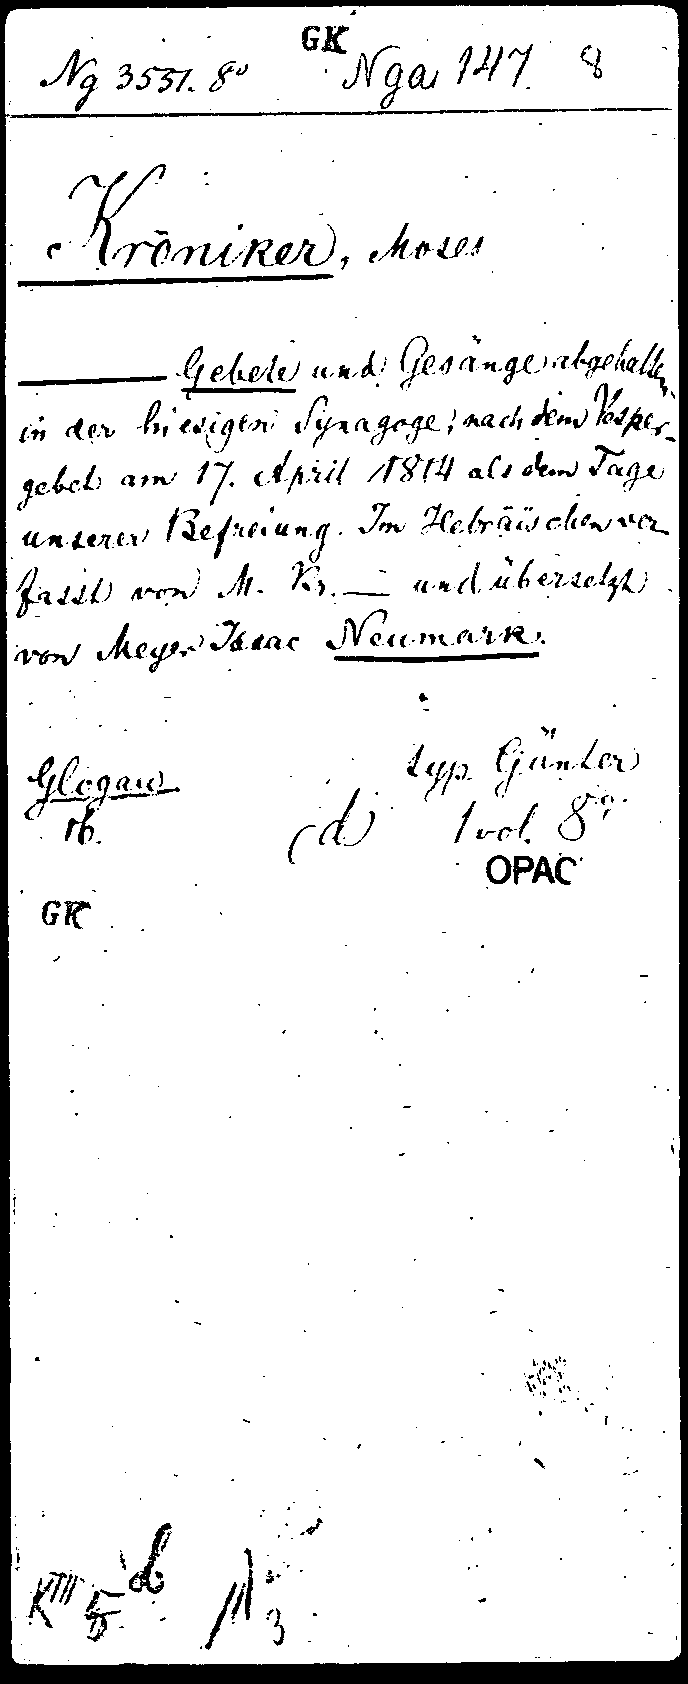 GK
Ng 3551. 8° Nga 147. 8
Kröniker, Moses
Gebete und Gesänge abgehalten
in der hiesigen Synagoge, nach dem Vesper-
gebet am 17. April 1814 als dem Tage
unserer Befreiung. Im Hebräischen ver
fasst von M. Kr. — und übersetzt
von Meyer Isaac Neumark.
Glogau typ. Günter
(d) 1 vol. 8°.
OPAC
GK
KIII
5
3